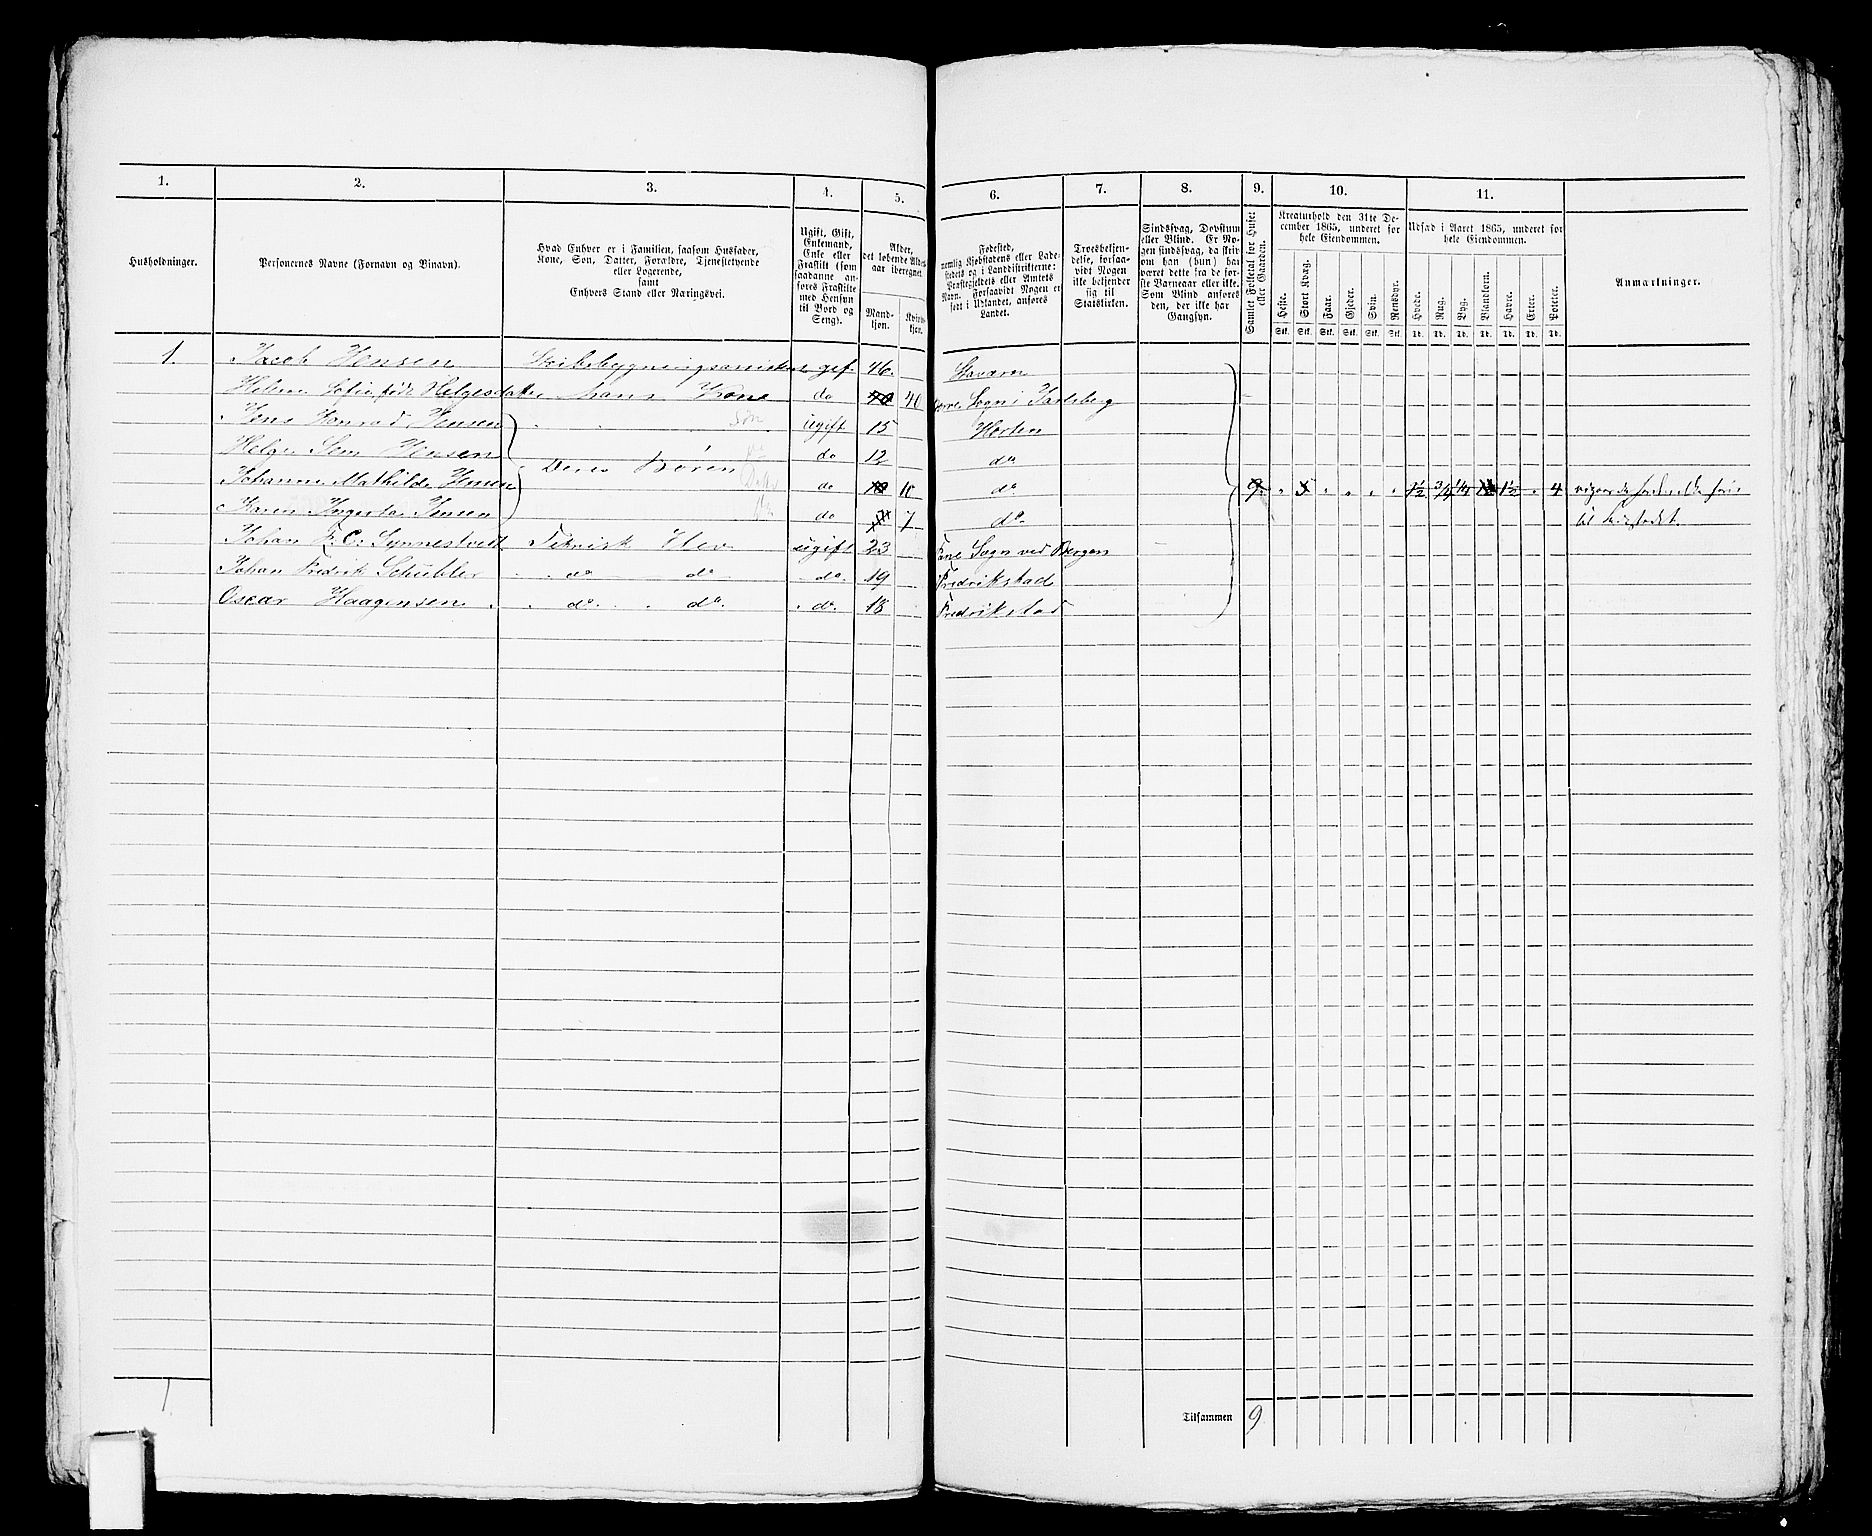 1.
2.
3.
4.
5.
6.
7.
8.
9.
10.
11.
Husholdninger.
Personernes Navne (Fornavn og Binavn).
Hvad Enhver er i Familien, saasom Husfader, Kone, Søn, Datter, Forældre, Tjenestetyende eller Logerende,
samt
Enhvers Stand eller Næringsvei.
Ugift, Gift, Enkemand, Enke eller Fraskilt (som saadanne anføres Fraskilte med Hensyn til Bord og Seng).
Alder, det løbende Alders-aar iberegnet.
Mand-kjøn.
Kvinde-kjøn.
Fødested,
nemlig Kjøbstadens eller Ladestedets og i Landdistrikterne: Præstegjeldets eller Amtets Navn. Forsaavidt Nogen er født i Udlandet, anføres Landet.
Troesbekjendelse, forsaavidt Nogen ikke bekjender sig til Statskirken.
Sindssvag, Døvstum eller Blind. Er Nogen sindssvag, da skrives om han (hun) har været dette fra de første Barneaar eller ikke. Som Blind anføres den, der ikke har Gangsyn.
Samlet Folketal for Huset eller Gaarden.
Kreaturhold den 31te December 1865, underet for hele Eiendommen.
Heste. Stort Kvæg. Faar. Gjeder. Svin. Rensdyr.
Udsæd i Aaret 1865, underet for hele Eiendommen.
Hvede. Rug. Byg. Blandkorn. Havre. Erter. Poteter.
Anmærkninger.
Stk. Stk. Stk. Stk. Stk. Stk. Td. Td. Td. Td. Td. Td. Td.
1. Jacob Jensen gif. 46. Stavern
Helene Sofie født Helgesdatter hans Kone do 40 40 Sogn i Jarlsberg
Jens Konrad Jensen Søn ugift 15 Horten
Helge Sem Jensen Deres Børn do 12 do
Johanne Mathilde Jensen do 10 10 do 9. 5 1½ ¾ ¼ 1½ 4
Karen Ingesta Jensen do 7 7 do
Johan F. C. Synnestvedt Teknisk Elev ugift 23 Fane Sogn ved Bergen
Johan Fredrik Schübler do do do. 19 Fredrikstad
Oscar Haagensen do. do. do. 18 Fredrikstad
1
Tilsammen 9